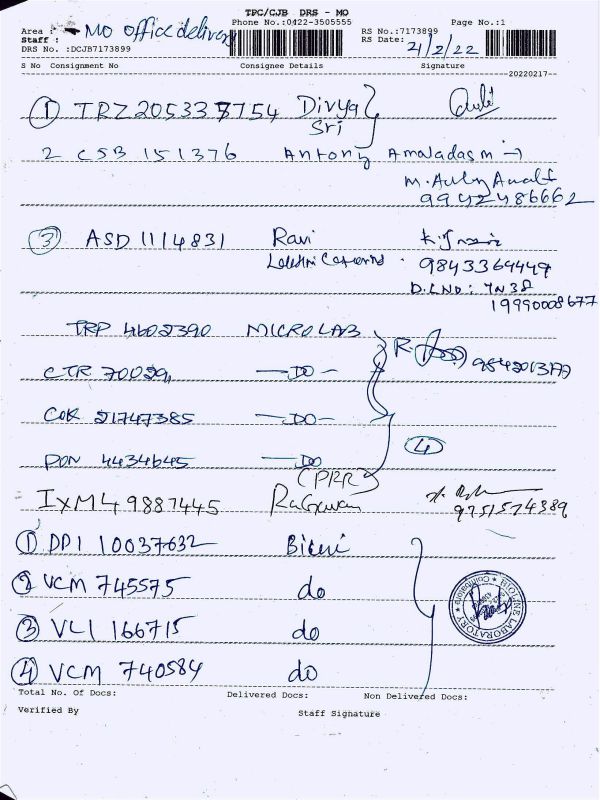 TPC/CJB DRS - MO
Phone No.:0422-3505555
Page No.:1
Area : MO office delivery
Staff :
DRS No. :DCJB7173899
RS No.:7173899
RS Date: 21/2/22
S No Consignment No Consignee Details Signature
20220217
1 TRZ205337754 Divya Sri
2 CSB 151376 Antony Amaladas m
9942486662
3 ASD 11114831 Ravi
9843364449
D.L NO: TN38
19990008677
TRP 4602390 MICRO LAB
CTR 70029 - DO -
COK 21747385 - DO -
PON 4434645 - DO
4
(PRR)
IXM49887445 Ragavan
9751574389
1 DPI 10037632
2 VCM 745575 do
3 VLI 166715 do
4 VCM 740584 do
Total No. Of Docs: Delivered Docs: Non Delivered Docs:
Verified By Staff Signature